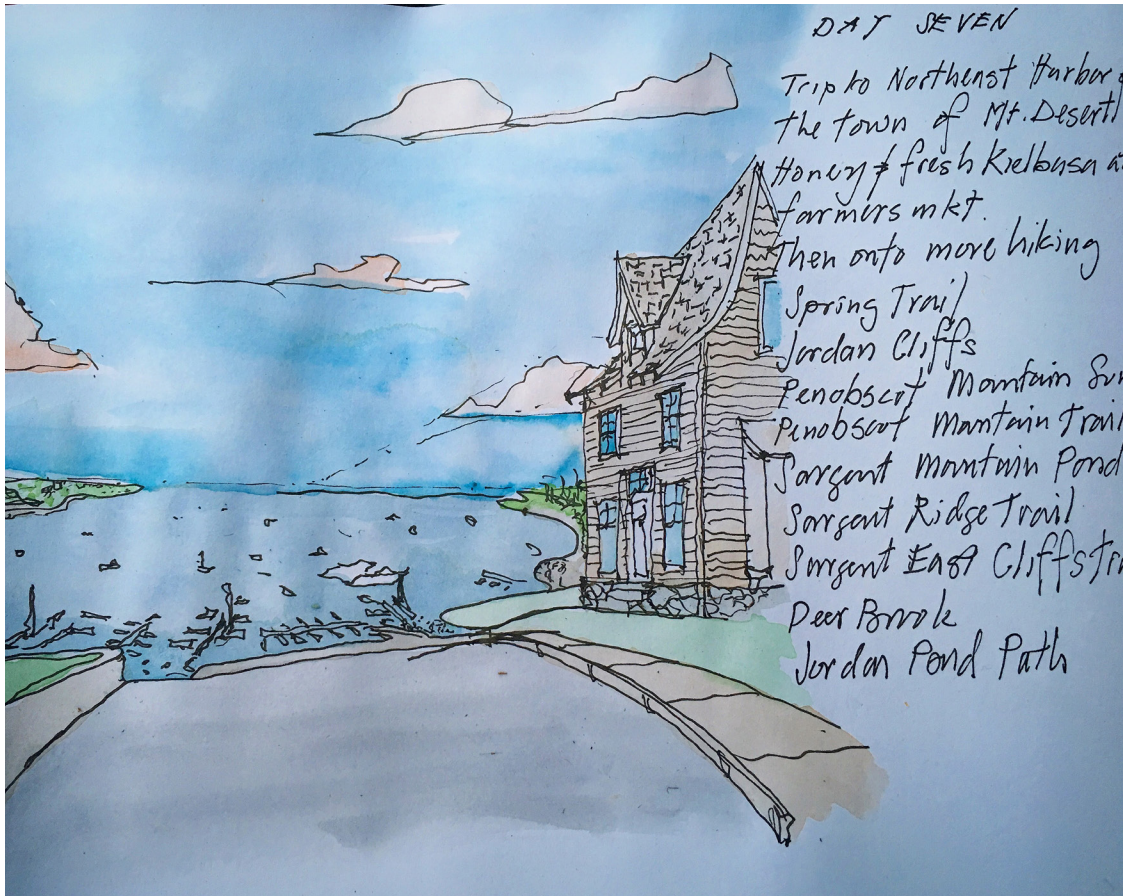 DAY SEVEN
Trip to Northeast Harbor &
the town of Mt. Desert
Honey & fresh Kielbasa a
farmers mkt.
Then onto more hiking
Spring Trail
Jordan Cliffs
Penobscot Mountain Sum
Penobscot Mantain Trail
Sargent Mountain Pond
Sargent Ridge Trail
Sargent East Cliffs Tra
Deer Brook
Jordan Pond Path